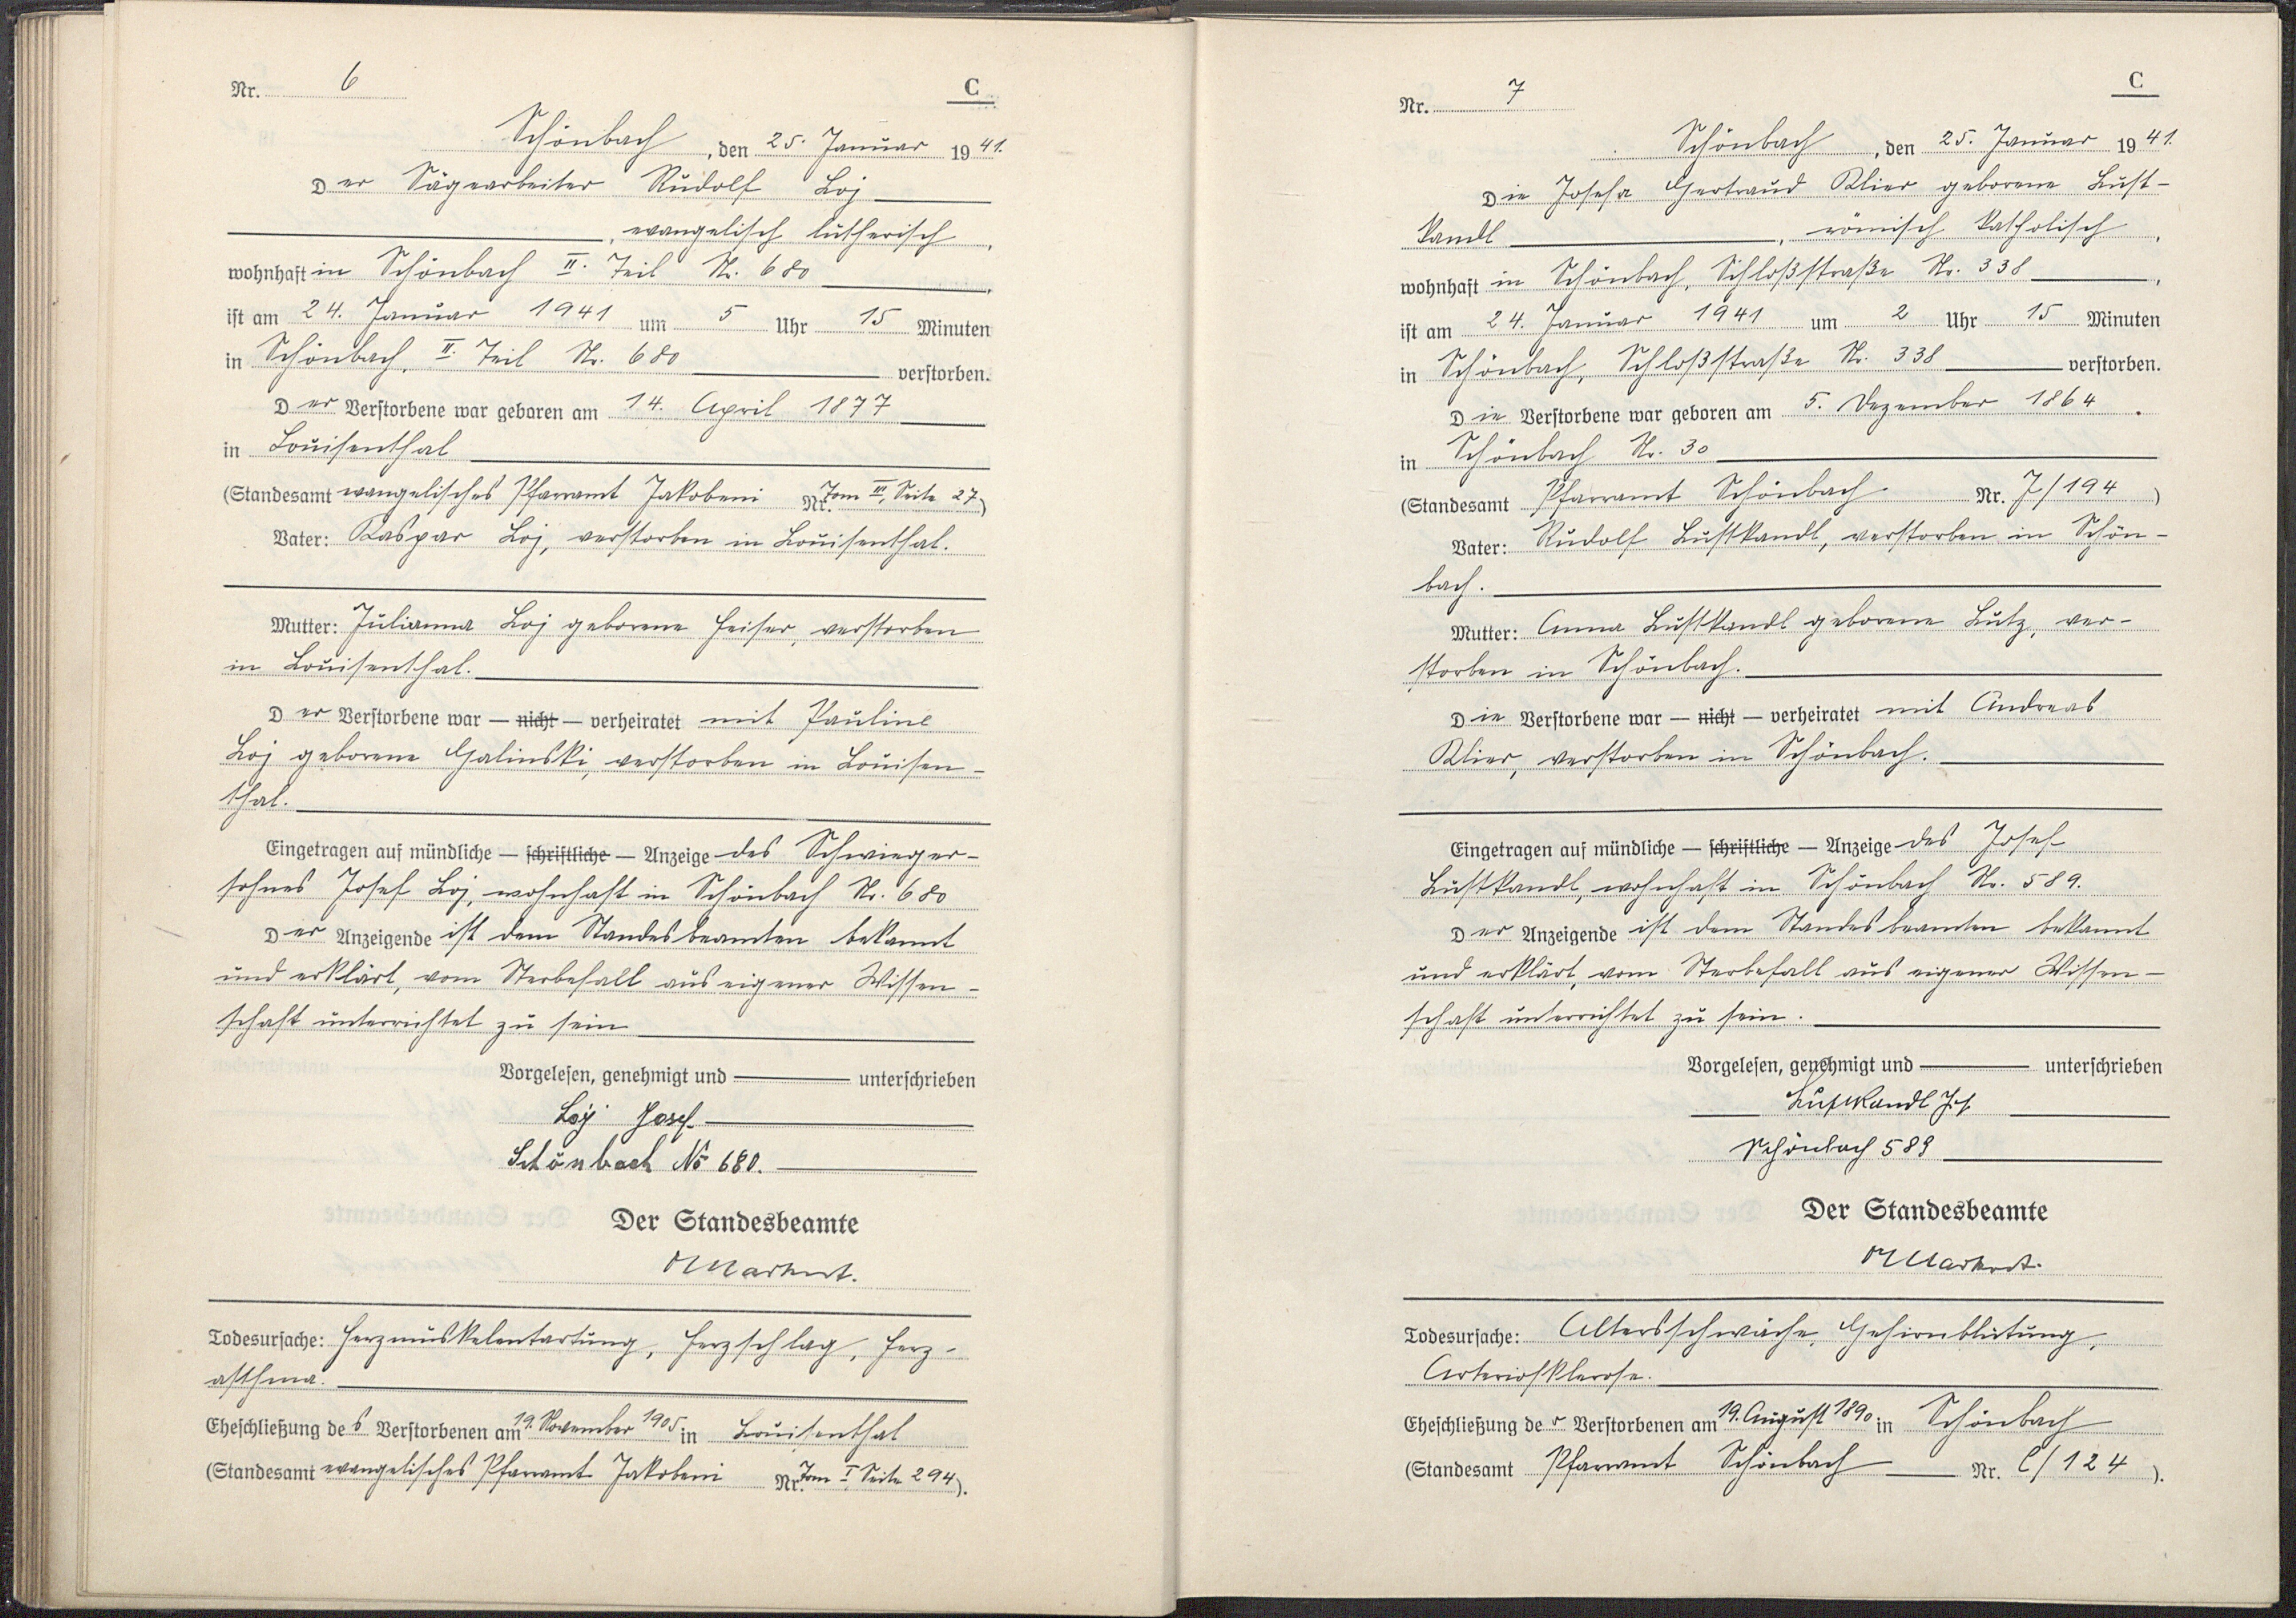 Nr. 6
C
Schönbach, den 25. Januar 1941.
Der Sägearbeiter Rudolf Loj
, evangelisch lutherisch,
wohnhaft in Schönbach II. Teil Nr. 680,
ist am 24. Januar 1941 um 5 Uhr 15 Minuten
in Schönbach, II. Teil Nr. 680 verstorben.
Der Verstorbene war geboren am 14. April 1877
in Louisenthal
(Standesamt evangelisches Pfarramt Jakobeni Nr. Tom III, Seite 27)
Vater: Kaspar Loj, verstorben in Louisenthal.
Mutter: Julianna Loj geborene Heiser, verstorben
in Louisenthal.
Der Verstorbene war — nicht — verheiratet mit Pauline
Loj geborene Galinski, verstorben in Louisen-
thal.
Eingetragen auf mündliche — schriftliche — Anzeige des Schwieger-
sohnes Josef Loj, wohnhaft in Schönbach Nr. 680
Der Anzeigende ist dem Standesbeamten bekannt
und erklärt, vom Sterbefall aus eigener Wissen-
schaft unterrichtet zu sein
Vorgelesen, genehmigt und unterschrieben
Loj Josef
Schönbach No 680.
Der Standesbeamte
Todesursache: Herzmuskelentartung, Herzschlag, Herz-
asthma.
Eheschließung des Verstorbenen am 19. November 1905 in Louisenthal
(Standesamt evangelisches Pfarramt Jakobeni Nr. Tom I, Seite 294).
Nr. 7
C
Schönbach, den 25. Januar 1941.
Die Josefa Gertraud Klier geborene Lust-
kandl, römisch katholisch,
wohnhaft in Schönbach, Schloßstraße Nr. 338,
ist am 24. Januar 1941 um 2 Uhr 15 Minuten
in Schönbach, Schloßstraße Nr. 338 verstorben.
Die Verstorbene war geboren am 5. Dezember 1864.
in Schönbach Nr. 30
(Standesamt Pfarramt Schönbach Nr. J/194)
Vater: Rudolf Lustkandl, verstorben in Schön-
bach.
Mutter: Anna Lustkandl geborene Lutz, ver-
storben in Schönbach.
Die Verstorbene war — nicht — verheiratet mit Andreas
Klier, verstorben in Schönbach.
Eingetragen auf mündliche — schriftliche — Anzeige des Josef
Lustkandl, wohnhaft in Schönbach Nr. 589.
Der Anzeigende ist dem Standesbeamten bekannt
und erklärt, vom Sterbefall aus eigener Wissen-
schaft unterrichtet zu sein.
Vorgelesen, genehmigt und unterschrieben
Lustkandl Jos.
Schönbach 589
Der Standesbeamte
Todesursache: Altersschwäche, Gehirnblutung,
Arteriosklerose.
Eheschließung der Verstorbenen am 19. August 1890 in Schönbach
(Standesamt Pfarramt Schönbach Nr. C/124).